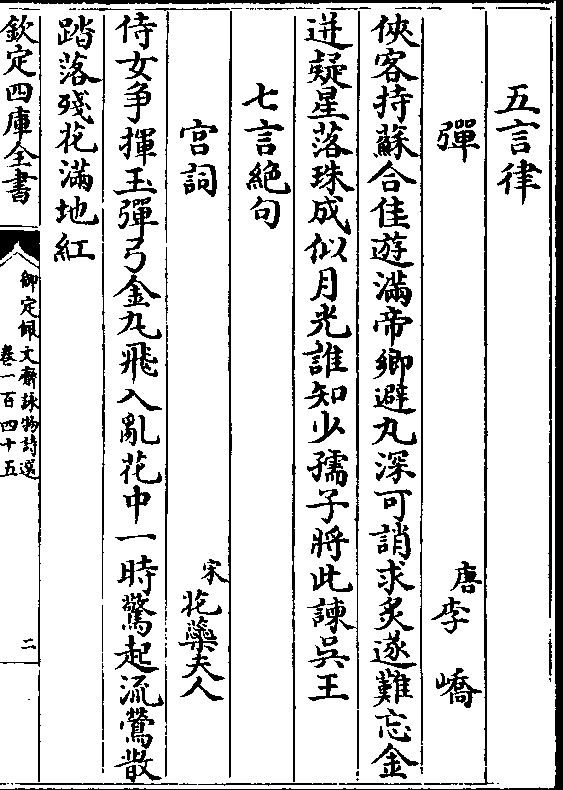 五言律
彈 唐李嶠
俠客持蘇合佳遊滿帝鄉避丸深可誚求炙遂難忘金
迸疑星落珠成似月光誰知少孺子將此諫吳王
七言絕句
宮詞 宋花蘂夫人
侍女爭揮玉彈弓金丸飛入亂花中一時驚起流鶯散
踏落殘花滿地紅
欽定四庫全書
御定佩文齋詠物詩選
卷一百四十五
二